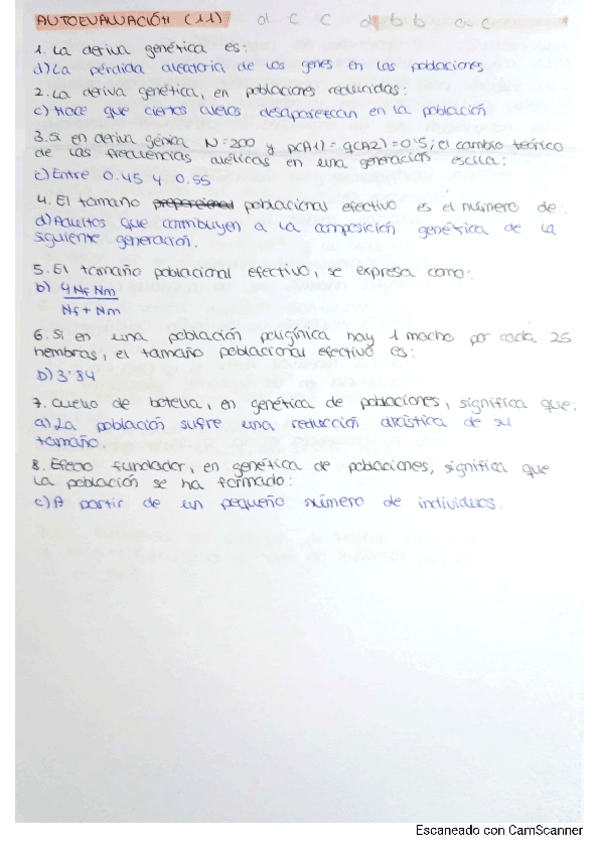 AUTOEVALUACIÓN (11) d c c d b b a c
1. La deriva genética es:
d) La pérdida aleatoria de los genes en las poblaciones
2. La deriva genética, en poblaciones reducidas:
c) Hace que ciertos alelos desaparezcan en la población
3. Si en deriva génica N=200 y p(A1) = q(A2) = 0'5; el cambio teórico
de las frecuencias alélicas en una generación oscila:
c) Entre 0.45 y 0.55
4. El tamaño poblacional efectivo es el número de:
d) Adultos que contribuyen a la composición genética de la
siguiente generación.
5. El tamaño poblacional efectivo, se expresa como:
b) 4 Nf Nm
Nf + Nm
6. Si en una población poligínica hay 1 macho por cada 25
hembras, el tamaño poblacional efectivo es:
b) 3'84
7. Cuello de botella, en genética de poblaciones, significa que:
a) La población sufre una reducción drástica de su
tamaño.
8. Efecto fundador, en genética de poblaciones, significa que
la población se ha formado:
c) A partir de un pequeño número de individuos.
Escaneado con CamScanner